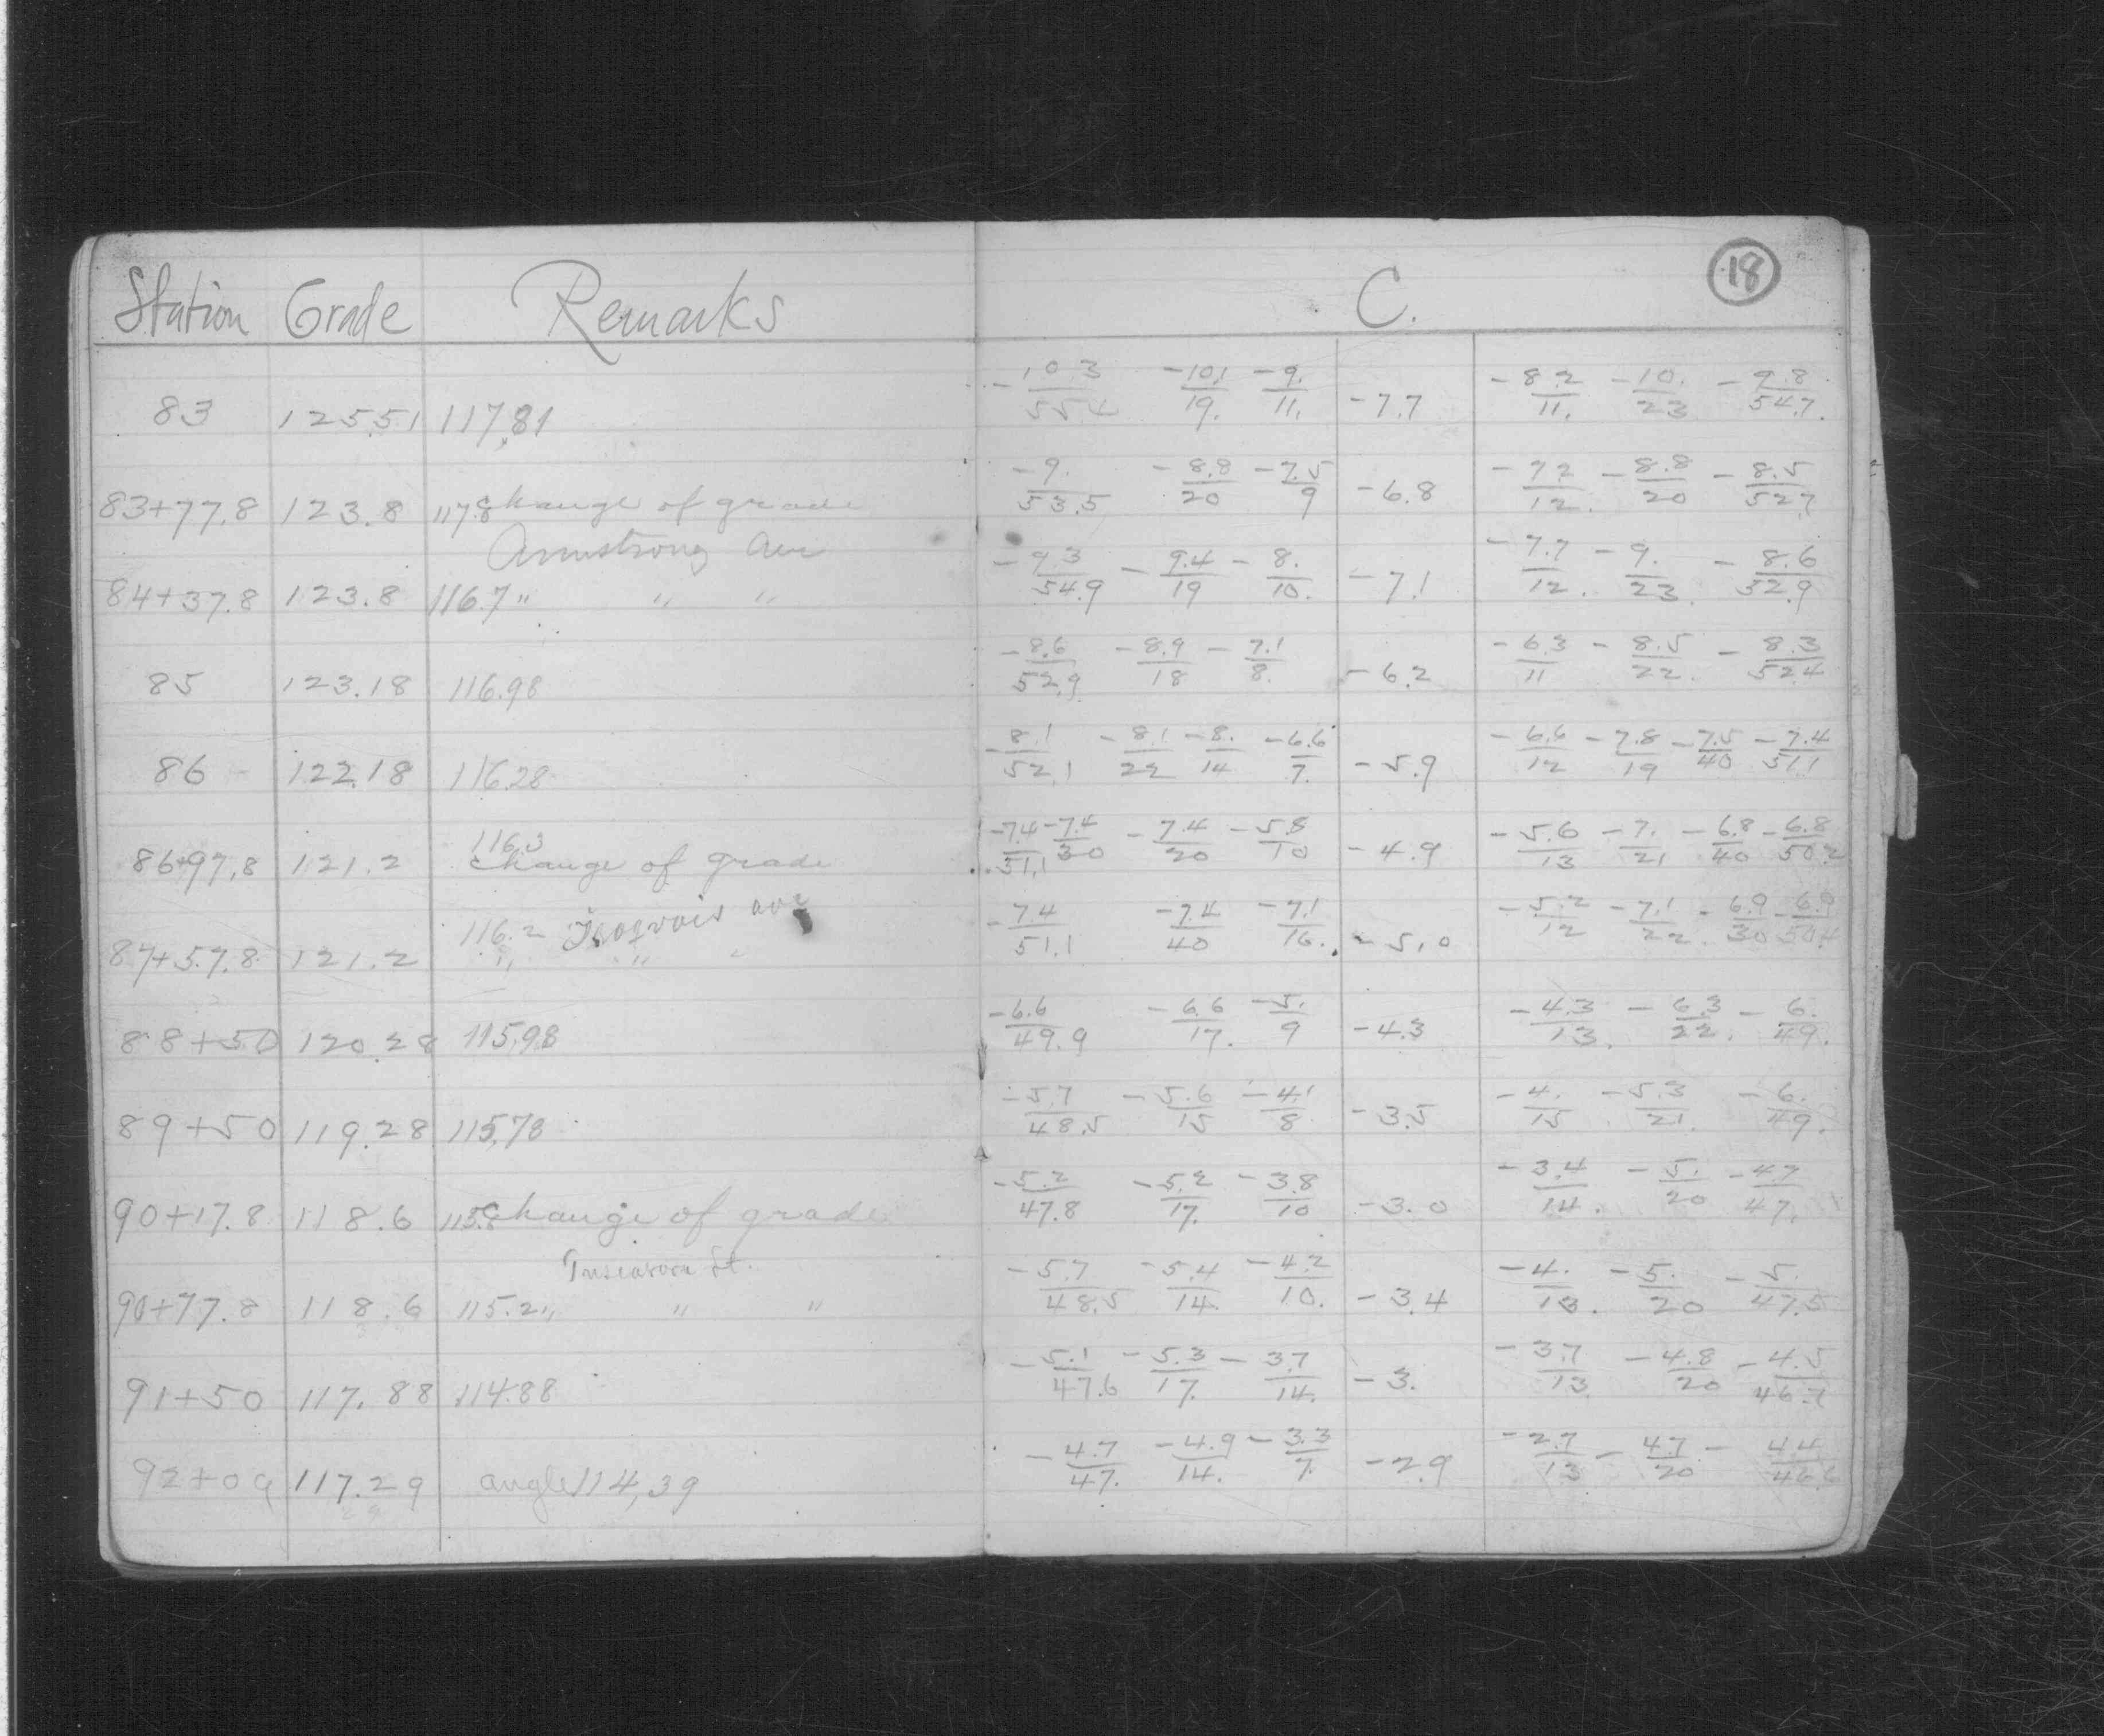 18
Station Grade Remarks C.
83 125.51 117.81 -10.3/55.4 -10.1/19. -9./11. -7.7 -8.2/11. -10./23 -9.8/54.7
83+77.8 123.8 117.8 change of grade -9./53.5 -8.8/20 -7.5/9 -6.8 -7.2/12. -8.8/20 -8.5/52.7
Armstrong Ave
84+37.8 123.8 116.7 " " " -9.3/54.9 -9.4/19 -8./10. -7.1 -7.7/12. -9./23. -8.6/52.9
85 123.18 116.98 -8.6/52.9 -8.9/18 -7.1/8. -6.2 -6.3/11 -8.5/22. -8.3/52.4
86 122.18 116.28 -8.1/52.1 -8.1/22 -8./14 -6.6/7. -5.9 -6.6/12 -7.8/19 -7.5/40 -7.4/51.1
116.3
86+97.8 121.2 change of grade -7.4/51.1 -7.4/30 -7.4/20 -5.8/10 -4.9 -5.6/13 -7./21 -6.8/40 -6.8/50.2
116.2 Iroqrois ave
87+57.8 121.2 " " " -7.4/51.1 -7.4/40 -7.1/16. -5.0 -5.2/12 -7.1/22. -6.9/30 -6.9/50.4
88+50 120.28 115.98 -6.6/49.9 -6.6/17. -5./9 -4.3 -4.3/13. -6.3/22. -6./49.
89+50 119.28 115.78 -5.7/48.5 -5.6/15 -4.1/8 -3.5 -4./15 -5.3/21. -6./49.
90+17.8 118.6 115.6 change of grade -5.2/47.8 -5.2/17. -3.8/10 -3.0 -3.4/14. -5./20 -4.7/47.
Tuscarora St.
90+77.8 118.6 115.2 " " " -5.7/48.5 -5.4/14. -4.2/10. -3.4 -4./13. -5./20 -5./47.5
91+50 117.88 114.88 -5.1/47.6 -5.3/17. -3.7/14. -3. -3.7/13. -4.8/20 -4.5/46.7
92+09 117.29 angle 114.39 -4.7/47. -4.9/14. -3.3/7. -2.9 -2.7/13 -4.7/20 -4.4/46.6